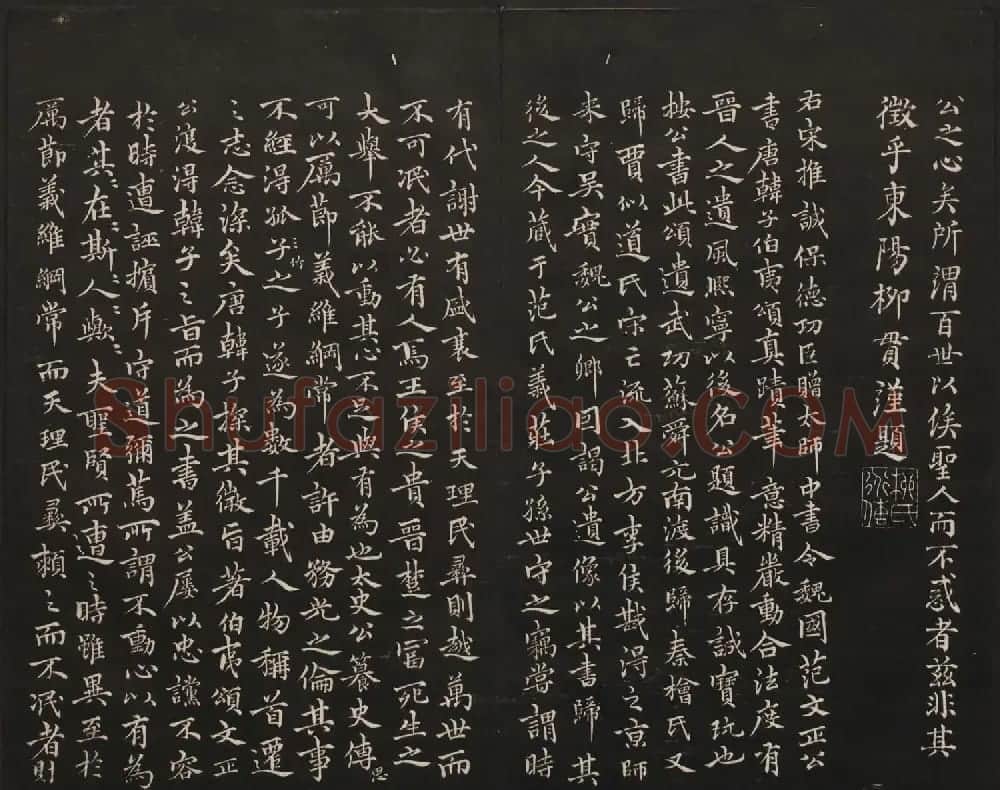 公之心矣所謂百世以俟聖人而不惑者茲非其
徵乎東陽柳貫謹題
柳氏
右宋推誠保德功臣贈太師中書令魏國范文正公
書唐韓子伯夷頌真蹟筆意精嚴動合法度有
晉人之遺風熙寧以後名公題識具存誠寶玩也
按公書此頌遺武功蘇舜元南渡後歸秦檜氏又
歸賈似道氏宋亡流入北方李侯戡得之京師
来守吳實魏公之鄉因謁公遺像以其書歸其
後之人今藏于范氏義莊子孫世守之竊嘗謂時
有代謝世有盛衰至於天理民彝則越萬世而
不可泯者必有人焉王侯之貴晉楚之富死生之
大舉不能以動其心不與有為也太史公纂史傳思
可以厲節義維綱常者許由務光之倫其事
不經得孤子之子遂為數千載人物稱首遷
之志念深矣唐韓子探其微旨著伯夷頌文正
公復得韓子之旨而為之書蓋公屢以忠讜不容
於時遭誣擯斥守道彌篤所謂不動心以有為
者其在斯人歟夫聖賢所遭之時雖異至於
厲節義維綱常而天理民彝賴之而不泯者則
Shufaziliao.COM